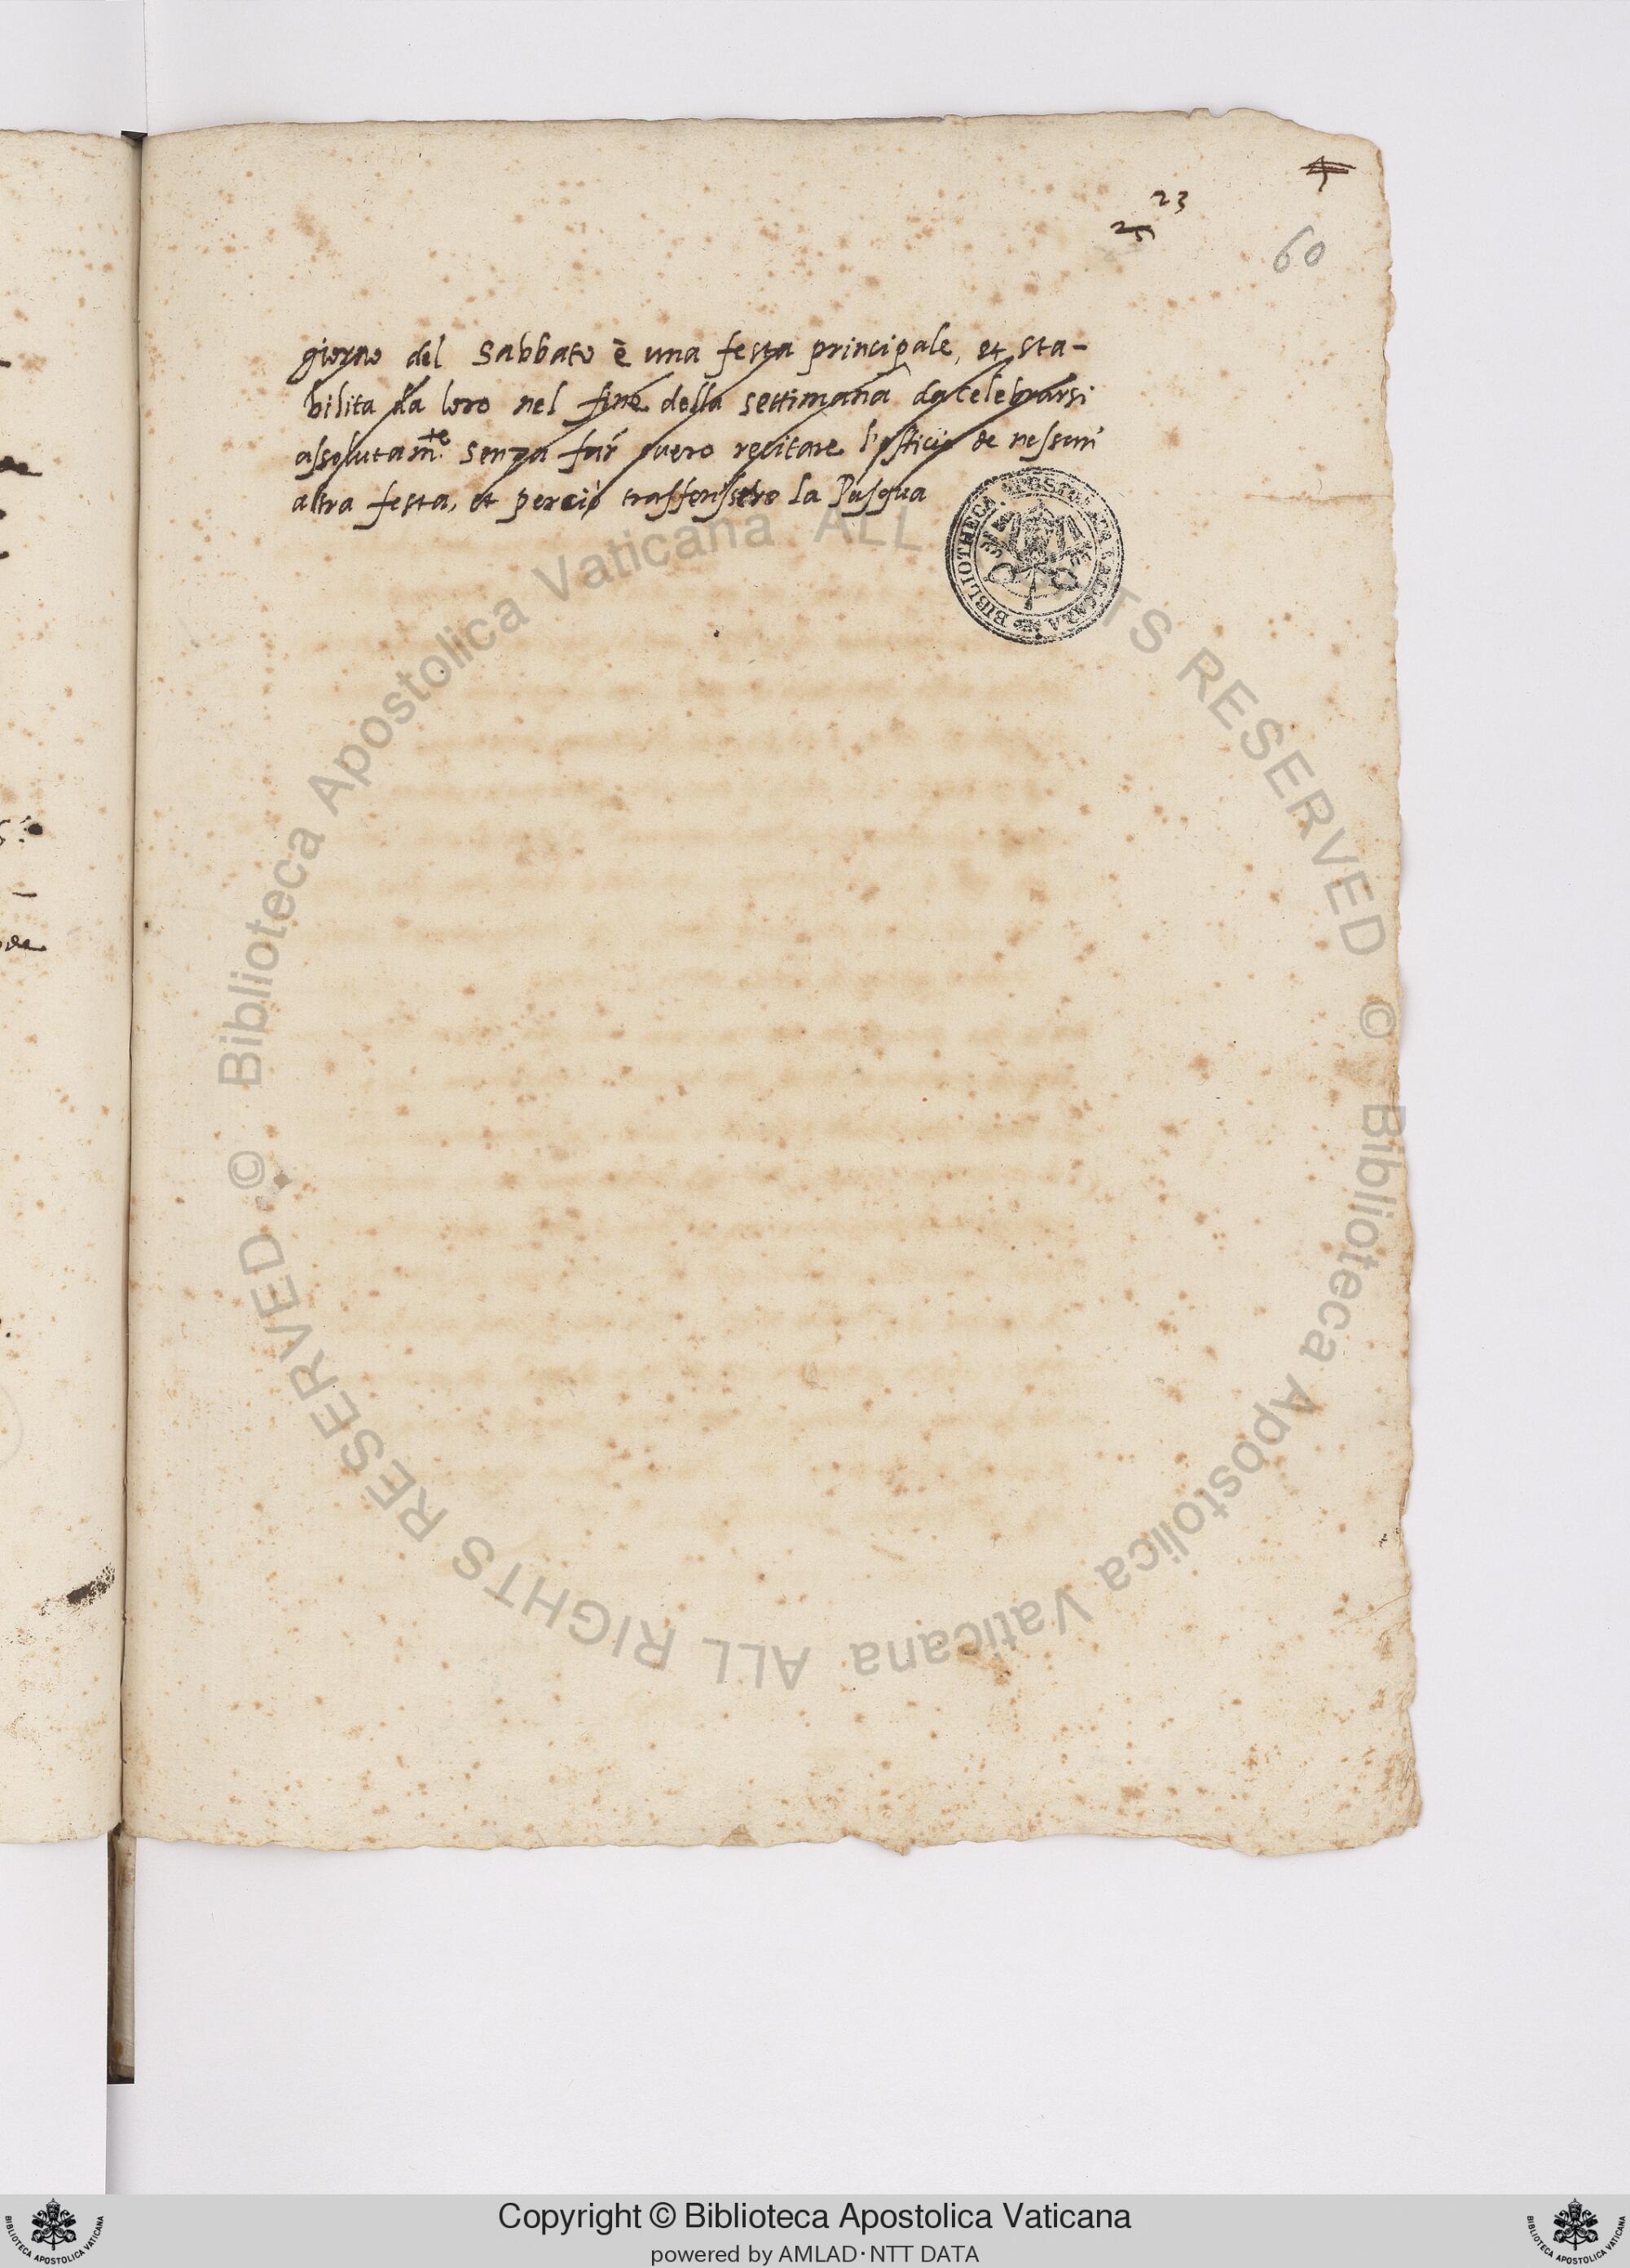 23
25
60
giorno del Sabbato è una festa principale, et sta-
bilita da loro nel fine della settimana da celebrarsi
assolutam.te senza far overo recitare l'officio de nessun'
altra festa, et perciò trasferissero la Pasqua
BIBLIOTHECA APOSTOLICA VATICANA
© Biblioteca Apostolica Vaticana ALL RIGHTS RESERVED
© Biblioteca Apostolica Vaticana ALL RIGHTS RESERVED
Copyright © Biblioteca Apostolica Vaticana
powered by AMLAD·NTT DATA
BIBLIOTECA APOSTOLICA VATICANA
BIBLIOTECA APOSTOLICA VATICANA